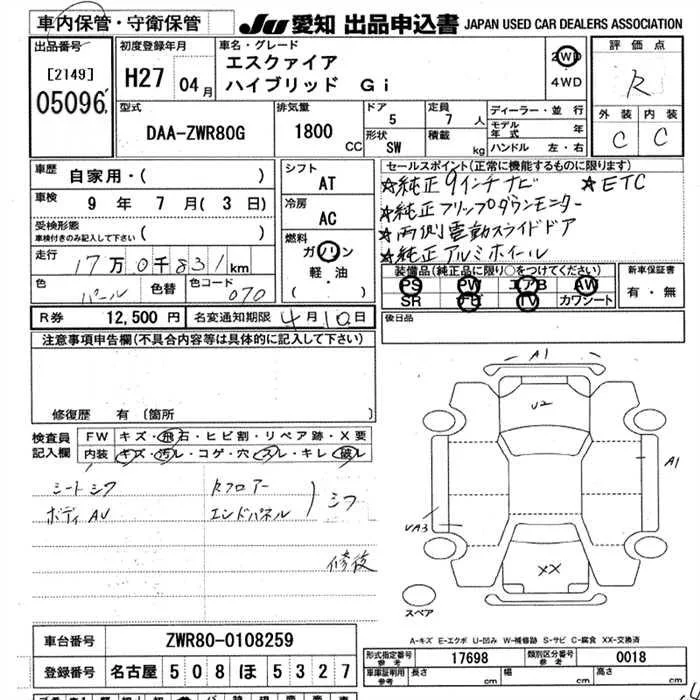 車内保管・守衛保管
JU 愛知 出品申込書 JAPAN USED CAR DEALERS ASSOCIATION
出品番号
[2149]
05096
初度登録年月
H27 04月
車名・グレード
エスクァイア
ハイブリッド Gi
2WD
4WD
評価点
R
外装 内装
C C
型式
DAA-ZWR80G
排気量
1800 CC
ドア
5
定員
7人
形状
SW
積載
kg
ディーラー・並行
モデル年式 年
ハンドル 左・右
車歴
自家用・( )
車検
9年 7月(3日)
受検形態
車検付きのみ記入して下さい ( )
走行
17万0千831km
色
パール
色替
色コード
070
シフト
AT
冷房
AC
燃料
ガソリン
軽・油
( )
セールスポイント(正常に機能するものに限ります)
☆純正9インチナビ ☆ETC
☆純正フリップダウンモニター
☆両側電動スライドドア
☆純正アルミホイール
装備品(純正品に限り○をつけてください)
PS PW エアB AW
SR ナビ TV カワシート
新車保証書
有・無
後日品
R券 12,500円 名変通知期限 4月10日
注意事項申告欄(不具合内容等は具体的に記入して下さい)
修復歴 有〔箇所
検査員記入欄
FW キズ・飛石・ヒビ割・リペア跡・X要
内装 キズ・汚レ・コゲ・穴・スレ・キレ・破レ
シートシワ
ボディAU
Rフロアー
エンドパネル
シワ
修復
A1
U2
A1
UA3
XX
スペア
A-キズ E-エクボ U-凹み W-補修跡 S-サビ C-腐食 XX-交換済
車台番号 ZWR80-0108259
登録番号 名古屋 508 ほ 5327
形式指定番号 参考 17698
類別区分番号 参考 0018
車庫証明用 参考 長さ cm 幅 cm 高さ cm